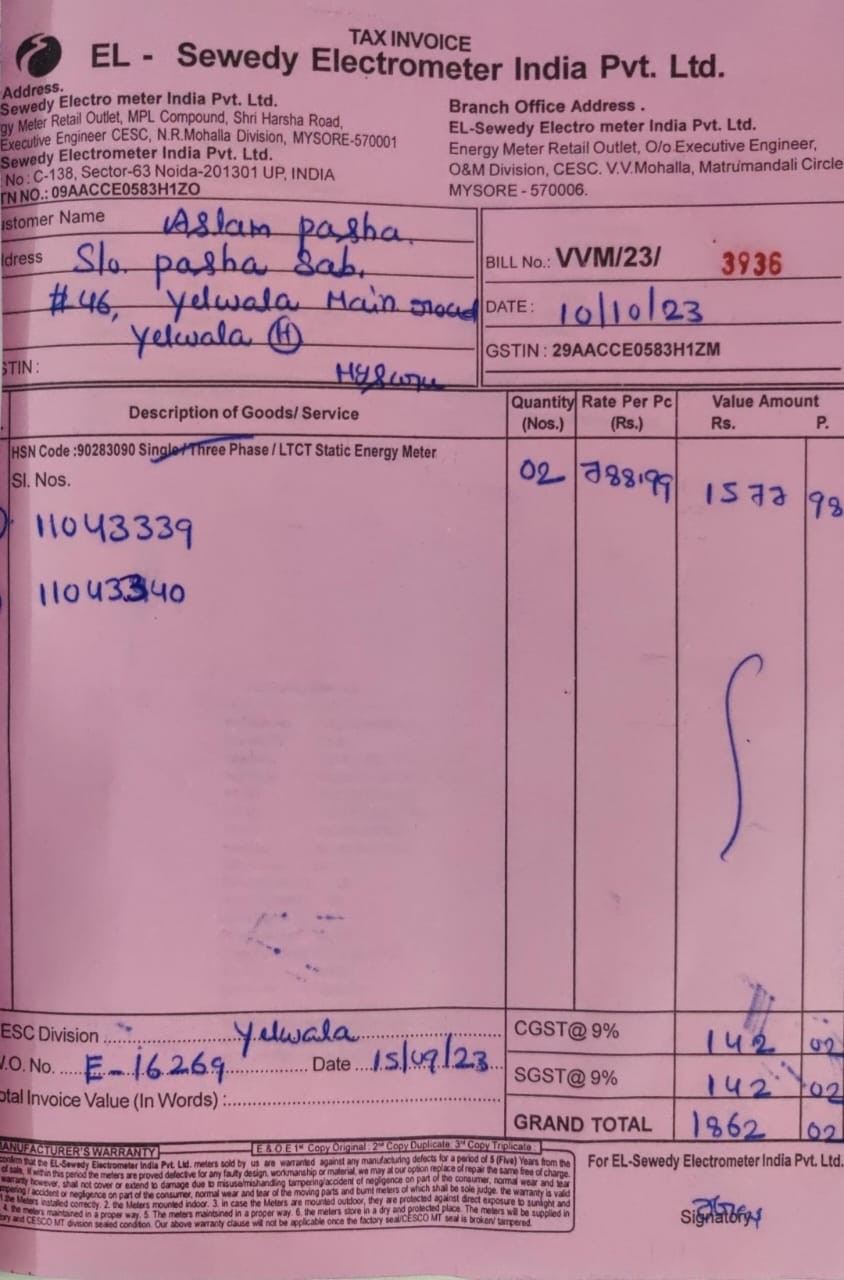 TAX INVOICE
EL - Sewedy Electrometer India Pvt. Ltd.
Address.
Sewedy Electro meter India Pvt. Ltd.
gy Meter Retail Outlet, MPL Compound, Shri Harsha Road,
Executive Engineer CESC, N.R.Mohalla Division, MYSORE-570001
Sewedy Electrometer India Pvt. Ltd.
No : C-138, Sector-63 Noida-201301 UP, INDIA
TN NO.: 09AACCE0583H1ZO
Branch Office Address .
EL-Sewedy Electro meter India Pvt. Ltd.
Energy Meter Retail Outlet, O/o.Executive Engineer,
O&M Division, CESC. V.V.Mohalla, Matrumandali Circle
MYSORE - 570006.
ustomer Name Aslam pasha.
ddress S/o. pasha Sab.
#46, Yelwala Main road
Yelwala (H)
STIN : Mysore
BILL No.: VVM/23/ 3936
DATE : 10/10/23
GSTIN : 29AACCE0583H1ZM
Description of Goods/ Service Quantity (Nos.) Rate Per Pc (Rs.) Value Amount Rs. P.
HSN Code :90283090 Single/Three Phase / LTCT Static Energy Meter 02 788.99 1577 98
Sl. Nos.
11043339
11043340
ESC Division Yelwala
V.O. No. E-16269 Date 15/09/23
otal Invoice Value (In Words) :
CGST@ 9% 142 02
SGST@ 9% 142 02
GRAND TOTAL 1862 02
MANUFACTURER'S WARRANTY E & O E 1st Copy Original : 2nd Copy Duplicate. 3rd Copy Triplicate :
confirm that the EL-Sewedy Electrometer India Pvt. Ltd. meters sold by us are warranted against any manufacturing defects for a period of 5 (Five) Years from the
of sale. If within this period the meters are proved defective for any faulty design, workmanship or material, we may at our option replace of repair the same free of charge.
warranty however, shall not cover or extend to damage due to misuse/mishandling tampering/accident of negligence on part of the consumer, normal wear and tear
mpering / accident or negligence on part of the consumer, normal wear and tear of the moving parts and burnt meters of which shall be sole judge. the warranty is valid
1.the Meters installed correctly. 2. the Meters mounted indoor. 3. in case the Meters are mounted outdoor, they are protected against direct exposure to sunlight and
4. the meters maintained in a proper way. 5. The meters maintained in a proper way. 6. the meters store in a dry and protected place. The meters will be supplied in
ory and CESCO MT division sealed condition. Our above warranty clause will not be applicable once the factory seal/CESCO MT seal is broken/ tampered.
For EL-Sewedy Electrometer India Pvt. Ltd.
Signatory